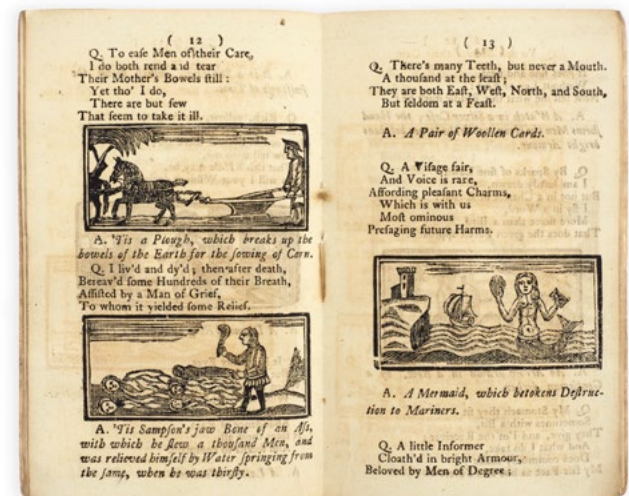 ( 12 )
Q. To eaſe Men of their Care,
I do both rend and tear
Their Mother's Bowels ſtill :
Yet tho' I do,
There are but few
That ſeem to take it ill.
A. 'Tis a Plough, which breaks up the
bowels of the Earth for the ſowing of Corn.
Q. I liv'd and dy'd ; then after death,
Bereav'd ſome Hundreds of their Breath,
Aſſiſted by a Man of Grief,
To whom it yielded ſome Relief.
A. 'Tis Sampſon's jaw Bone of an Aſs,
with which he ſlew a thouſand Men, and
was relieved himſelf by Water ſpringing from
the ſame, when he was thirſty.
( 13 )
Q. There's many Teeth, but never a Mouth.
A thouſand at the leaſt ;
They are both Eaſt, Weſt, North, and South,
But ſeldom at a Feaſt.
A. A Pair of Woollen Cards.
Q. A Viſage fair,
And Voice is rare,
Affording pleaſant Charms,
Which is with us
Moſt ominous
Preſaging future Harms.
A. A Mermaid, which betokens Deſtruc-
tion to Mariners.
Q. A little Informer
Cloath'd in bright Armour,
Beloved by Men of Degree ;